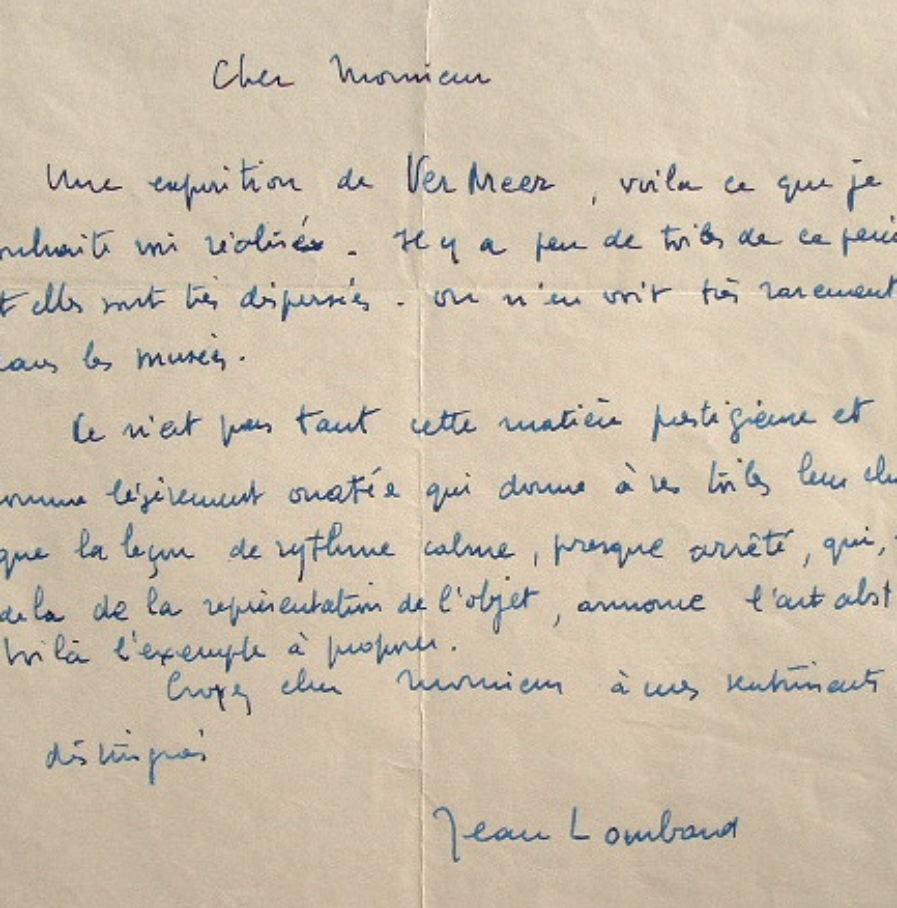 Cher Monsieur
Une exposition de Ver Meer, voila ce que je
ouhaite voir réalisée. Il y a peu de toiles de ce
t elles sont très dispersées. on n'en voit très rarement
dans les musées.
Ce n'est pas tant cette matière prestigieuse et
comme légèrement ouatée qui donne à ses toiles leur
que la leçon de rythme calme, presque arrêté, qui,
dela de la représentation de l'objet, annonce l'art abst
Voilà l'exemple à proposer.
Croyez cher Monsieur à mes sentiments
distingués
Jean Lombard